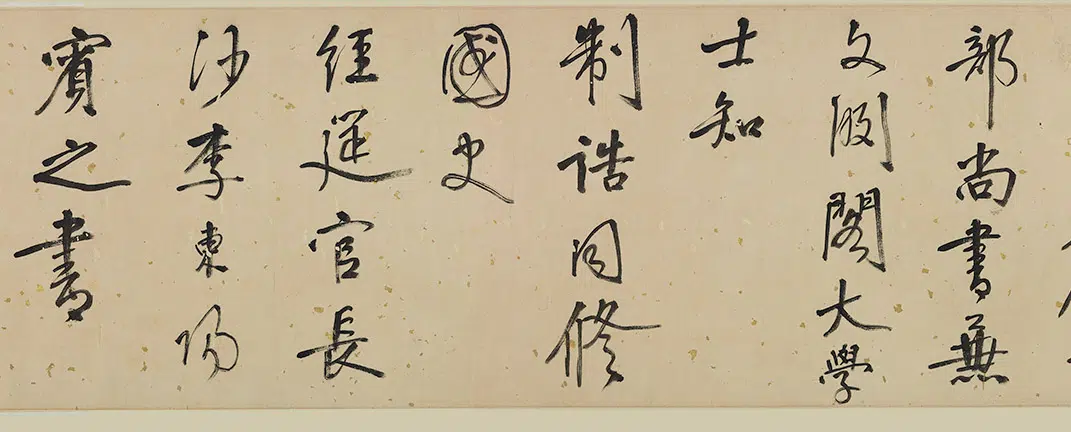 部尚書兼
文淵閣大學
士知
制誥同修
國史
經筵官長
沙李東陽
賓之書